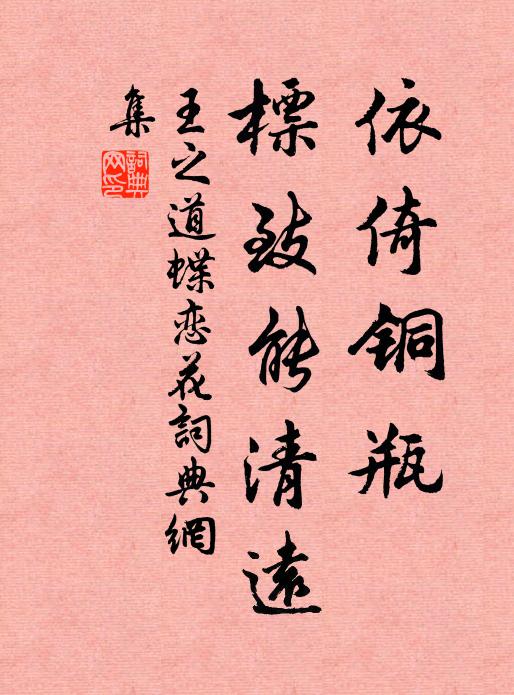 依倚铜瓶
標致能清遠
王之道蝶恋花詞典網
集
詞典網印